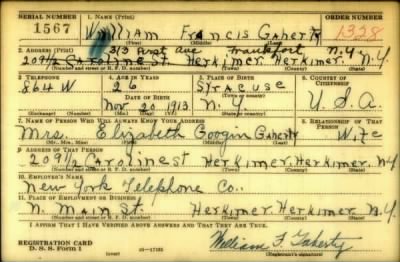 SERIAL NUMBER 1. NAME (Print) ORDER NUMBER
1567 William Francis Gaherty 1328
(First) (Middle) (Last)
2. ADDRESS (Print) 313 First Ave Frankfort N.Y
209½ Caroline St. Herkimer, Herkimer, N.Y.
(Number and street or R. F. D. number) (Town) (County) (State)
3. TELEPHONE 4. AGE IN YEARS 5. PLACE OF BIRTH 6. COUNTRY OF CITIZENSHIP
864W 26 Syracuse
DATE OF BIRTH (Town or county)
Nov. 20 1913 N.Y. U.S.A.
(Exchange) (Number) (Mo.) (Day) (Yr.) (State or country)
7. NAME OF PERSON WHO WILL ALWAYS KNOW YOUR ADDRESS 8. RELATIONSHIP OF THAT PERSON
Mrs. Elizabeth Googin Gaherty Wife
(Mr., Mrs., Miss) (First) (Middle) (Last)
9. ADDRESS OF THAT PERSON
209½ Caroline St Herkimer, Herkimer, N.Y
(Number and street or R. F. D. number) (Town) (County) (State)
10. EMPLOYER'S NAME
New York Telephone Co.
11. PLACE OF EMPLOYMENT OR BUSINESS
N. Main St. Herkimer, Herkimer N.Y.
(Number and street or R. F. D. number) (Town) (County) (State)
I AFFIRM THAT I HAVE VERIFIED ABOVE ANSWERS AND THAT THEY ARE TRUE.
REGISTRATION CARD
D. S. S. FORM 1 (over) 16—17105 William F. Gaherty
(Registrant's signature)